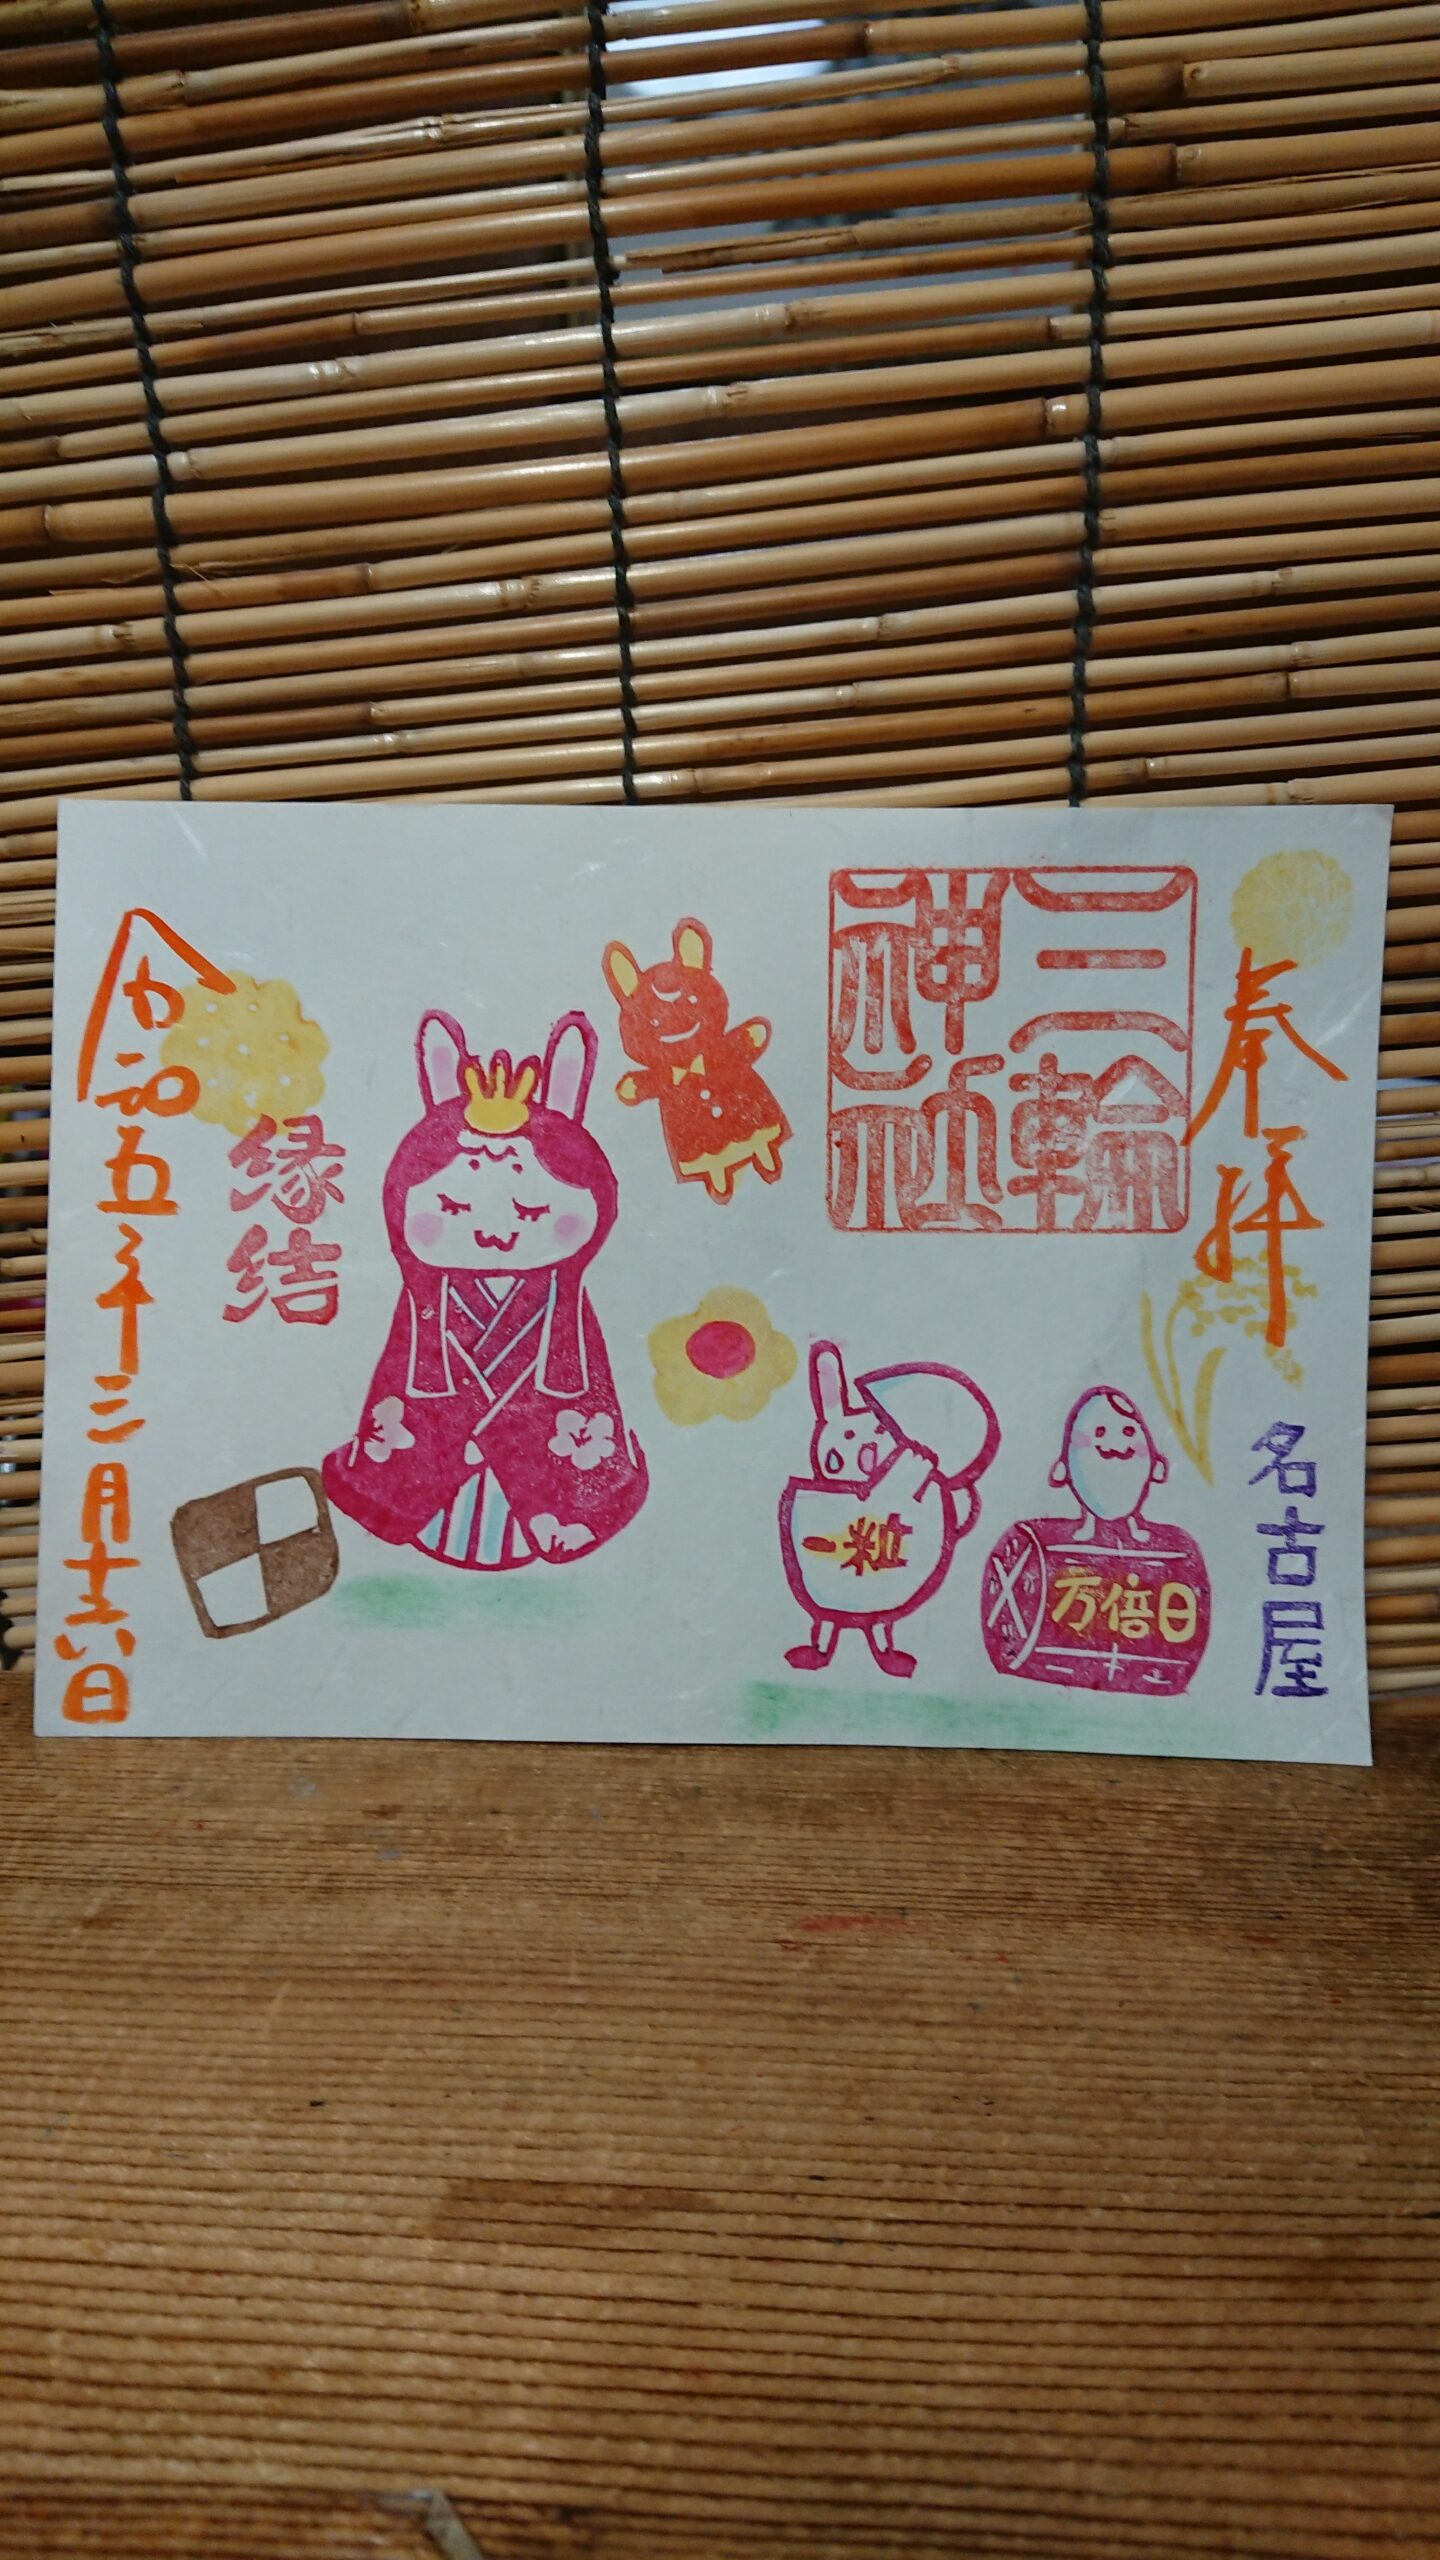 奉拝
三輪
神社
名古屋
万倍日
一粒
縁結
令和五年三月十六日